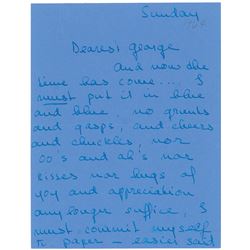 Sunday
Dearest george
and now the
time has come... I
must put it in blue
and blue no grunts
and gasps, and cheers
and chuckles, nor
oo's and ah's nor
kisses nor hugs of
joy and appreciation
any longer suffice, I
must commit myself
to paper - easier said